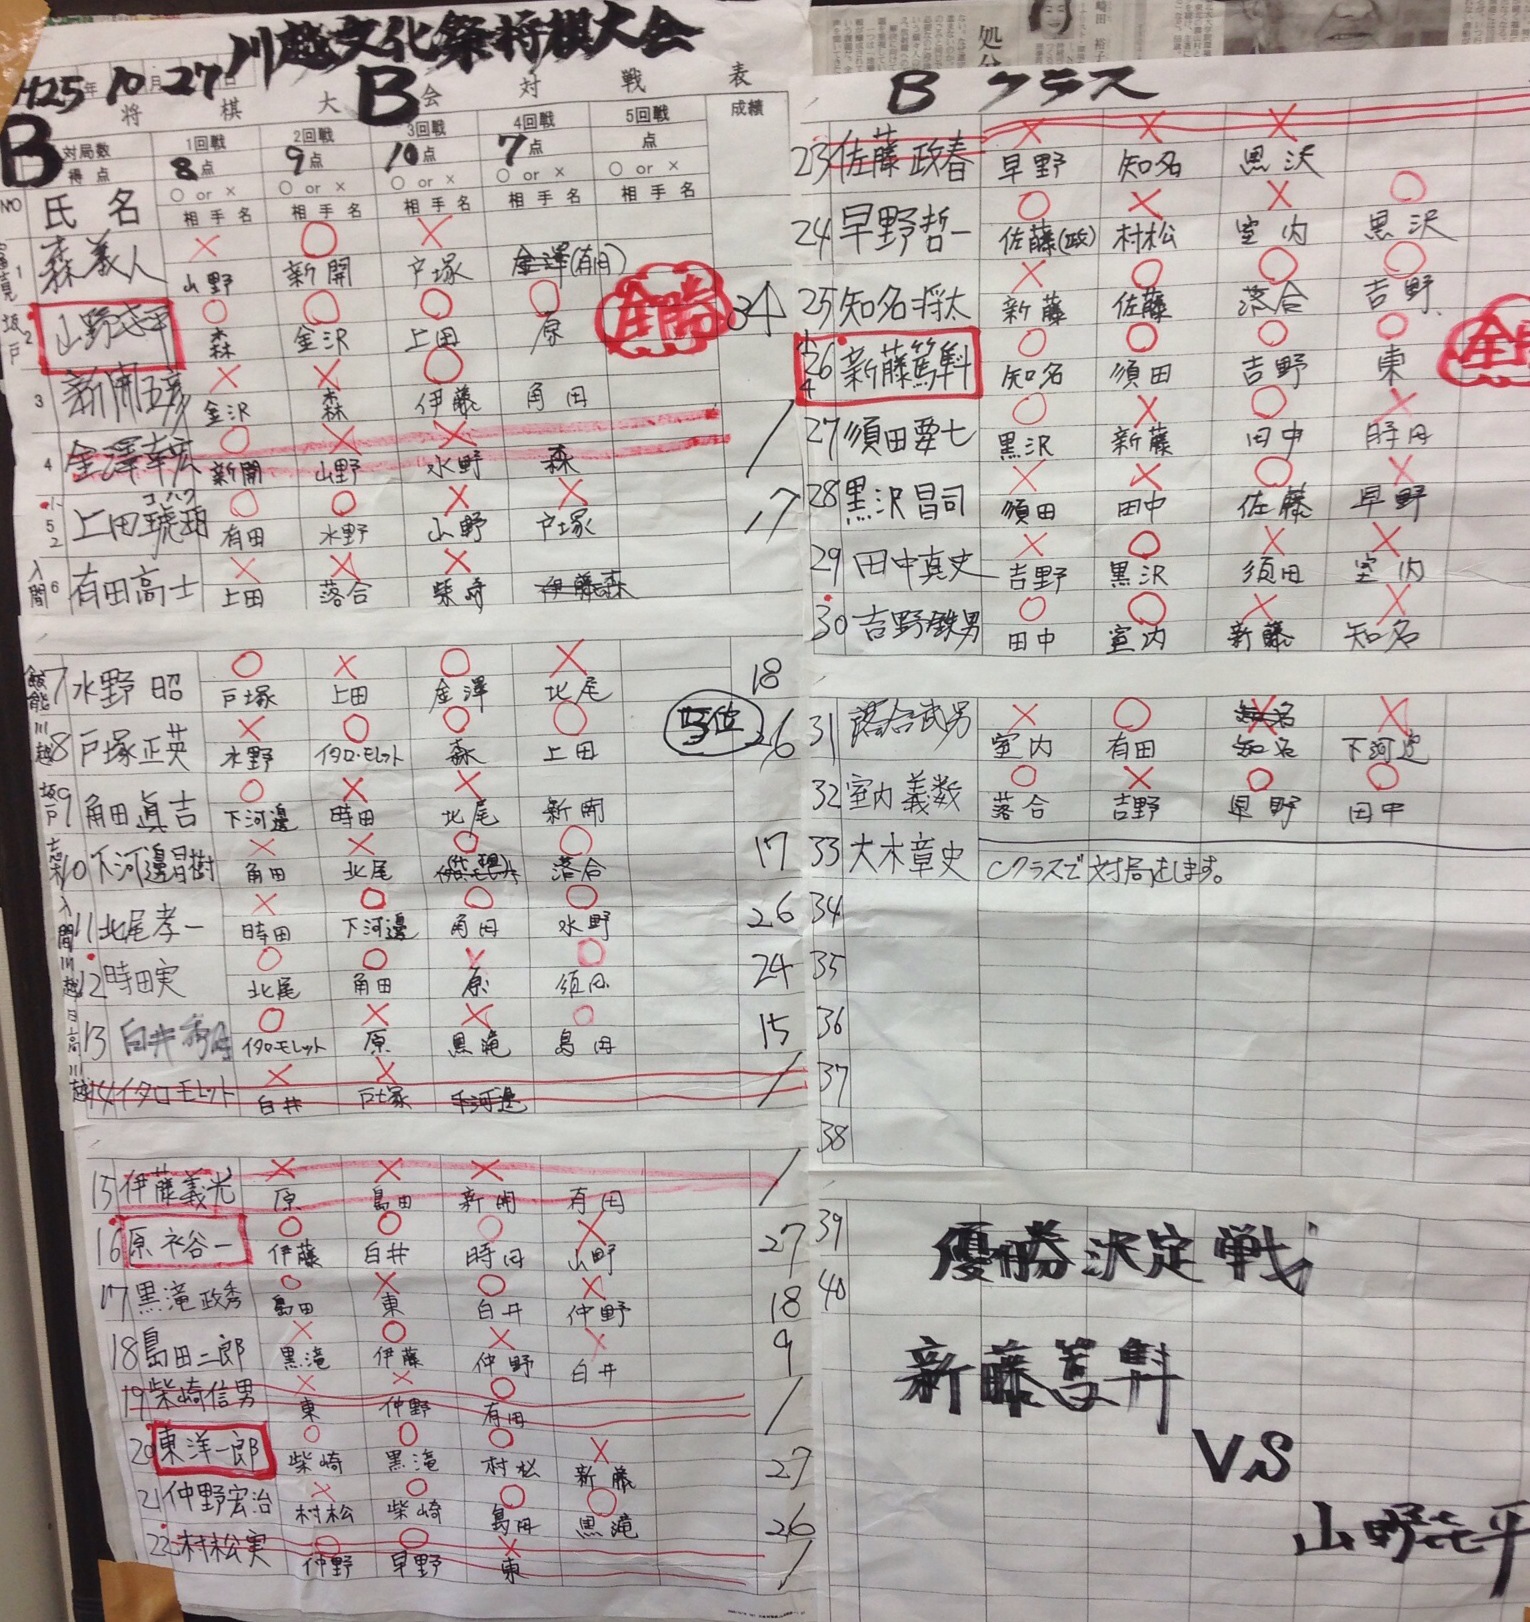 川越文化祭将棋大会
H25年 10月 27日
将棋大会対戦表
B B
対局数 1回戦 2回戦 3回戦 4回戦 5回戦 成績
得点 8点 9点 10点 7点 点
○ or × ○ or × ○ or × ○ or × ○ or ×
NO 氏名 相手名 相手名 相手名 相手名 相手名
× ○ ×
1 森義人 山野 新開 戸塚 金澤(有田)
○ ○ ○ ○
坂戸 2 山野 森 金沢 上田 原 全勝 34
× × ○
3 新開 金沢 森 伊藤 角田
○ × ×
4 金澤幸宏 新開 山野 水野 森
コハク
○ ○ × ×
5 上田琥珀 有田 水野 山野 戸塚 17
× × ×
入間 6 有田高士 上田 落合 柴崎 伊藤 森
○ × ○ ×
飯能 7 水野昭 戸塚 上田 金澤 北尾 18
× ○ ○ ○
川越 8 戸塚正英 水野 イタロ・モレット 森 上田 5位 26
○ × ×
坂戸 9 角田眞吉 下河邊 時田 北尾 新開
× × ○ ○
志木 10 下河邊昌樹 角田 北尾 落合 17
× ○ ○ ○
入間 11 北尾孝一 時田 下河邊 角田 水野 26
○ ○ × ○
川越 12 時田実 北尾 角田 原 須田 24
○ × × ○
日高 13 白井 イタロモレット 原 黒滝 島田 15
× ×
川越 14 イタロモレット 白井 戸塚 下河邊
× × ×
15 伊藤義光 原 島田 新開 有田
○ ○ ○ ×
16 原裕一 伊藤 白井 時田 山野 27
○ × ○ ×
17 黒滝政秀 島田 東 白井 仲野 18
× ○ × ×
18 島田二郎 黒滝 伊藤 仲野 白井 9
× × ○
19 柴崎信男 東 仲野 有田
○ ○ ○ ×
20 東洋一郎 柴崎 黒滝 村松 新藤 27
× ○ ○ ○
21 仲野宏治 村松 柴崎 島田 黒滝 26
○ ○ ×
22 村松実 仲野 早野 東
B クラス
× × ×
23 佐藤政春 早野 知名 黒沢
○ × × ○
24 早野哲一 佐藤(政) 村松 室内 黒沢
× ○ ○ ○
25 知名将太 新藤 佐藤 落合 吉野
○ ○ ○ ○
26 新藤篤斟 知名 須田 吉野 東 全
○ × ○ ×
27 須田要七 黒沢 新藤 田中 時田
× × ○ ×
28 黒沢昌司 須田 田中 佐藤 早野
× ○ × ×
29 田中真史 吉野 黒沢 須田 室内
○ ○ × ×
30 吉野鉄男 田中 室内 新藤 知名
× ○ × ×
31 落合武男 室内 有田 知名 下河辺
○ × ○ ○
32 室内義数 落合 吉野 早野 田中
33 大木章史 Cクラスで対局をします。
34
35
36
37
38
39
40
優勝決定戦
新藤篤斟
VS
山野
処分